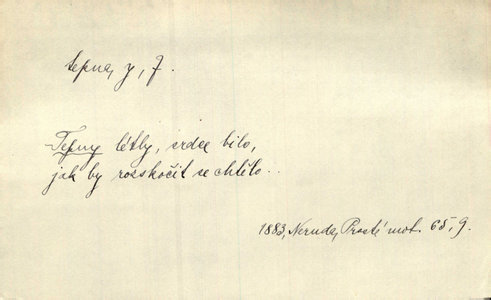 tepna, y, f.
Tepny létly, srdce bilo,
jak by rozskočit se chtělo..
1883, Neruda, Prosté mot. 65, 9.